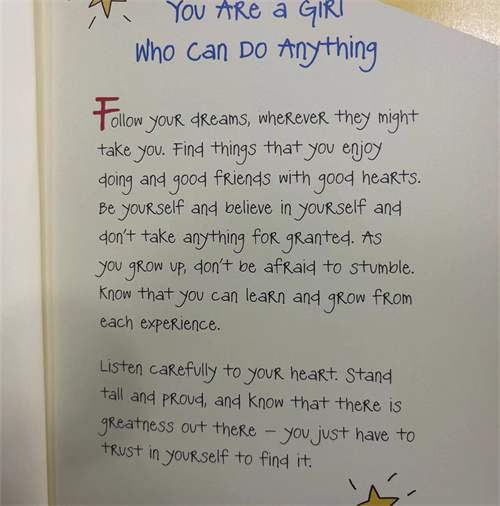 You Are a Girl
Who Can Do Anything
Follow your dreams, wherever they might
take you. Find things that you enjoy
doing and good friends with good hearts.
Be yourself and believe in yourself and
don't take anything for granted. As
you grow up, don't be afraid to stumble.
Know that you can learn and grow from
each experience.
Listen carefully to your heart. Stand
tall and proud, and know that there is
greatness out there – you just have to
trust in yourself to find it.